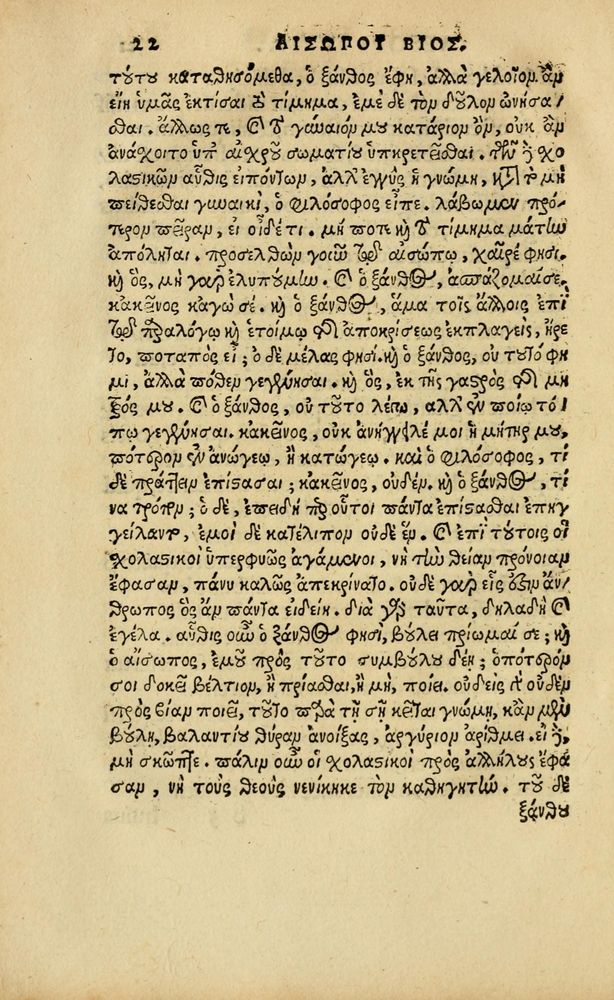 22 ΑΙΣΩΠΟΥ ΒΙΟΣ.
τούτου καταθησόμεθα, ὁ ξάνθος ἔφη, ἀλλὰ γελοῖον ἂν
εἴη ὑμᾶς ἐκτίσαι τὸ τίμημα, ἐμὲ δὲ τὸν δοῦλον ὠνήσα/
σθαι. ἄλλως τε, καὶ τὸ γύναιόν μου κατάριον ὂν, οὐκ ἂν
ἀνάσχοιτο ὑπ' αἰσχροῦ σωματίου ὑπηρετεῖσθαι. τῶν δὲ σχο
λαστικῶν αὖθις εἰπόντων, ἀλλ' ἐγγὺς ἡ γνώμη, καὶ τὸ μὴ
πείθεσθαι γυναικὶ, ὁ φιλόσοφος εἶπε. λάβωμεν πρό/
τερον πεῖραν, εἰ οἶδέ τι. μή ποτε καὶ τὸ τίμημα μάτην
ἀπόληται. προσελθὼν γοῦν τῷ αἰσώπῳ, χαῖρέ φησι.
καὶ ὃς, μὴ γὰρ ἐλυπούμην. καὶ ὁ ξάνθος, ἀσπάζομαί σε.
κἀκεῖνος κἀγώ σέ. καὶ ὁ ξάνθος, ἅμα τοῖς ἄλλοις ἐπὶ
τῷ παραλόγῳ καὶ ἑτοίμῳ τῆς ἀποκρίσεως ἐκπλαγεὶς, ἤρε
το, ποταπὸς εἶ; ὁ δὲ μέλας φησί. καὶ ὁ ξάνθος, οὐ τοῦτό φη
μι, ἀλλὰ πόθεν γεγέννησαι. καὶ ὃς, ἐκ τῆς γαστρὸς τῆς μη
τρός μου. καὶ ὁ ξάνθος, οὐ τοῦτο λέγω, ἀλλ' ἐν ποίῳ τό/
πῳ γεγέννησαι. κἀκεῖνος, οὐκ ἀνήγγειλέ μοι ἡ μήτηρ μου,
πότερον ἐν ἀνώγεῳ, ἢ κατώγεῳ. καὶ ὁ φιλόσοφος, τί
δὲ πράττειν ἐπίστασαι; κἀκεῖνος, οὐδέν. καὶ ὁ ξάνθος, τί
να τρόπον; ὁ δὲ, ἐπειδή περ οὗτοι πάντα ἐπίστασθαι ἐπηγ
γείλαντο, ἐμοὶ δὲ κατέλιπον οὐδὲ ἕν. καὶ ἐπὶ τούτοις οἱ
σχολαστικοὶ ὑπερφυῶς ἀγάμενοι, νὴ τὴν θείαν πρόνοιαν
ἔφασαν, πάνυ καλῶς ἀπεκρίνατο. οὐδὲ γὰρ εἷς ἐστιν ἄν/
θρωπος ὃς ἂν πάντα εἰδείη. διὰ γὰρ ταῦτα, δηλαδὴ καὶ
ἐγέλα. αὖθις οὖν ὁ ξάνθος φησί, βούλει πρίωμαί σε; καὶ
ὁ αἴσωπος, ἐμοῦ πρὸς τοῦτο συμβούλου δέῃ; ὁπότερόν
σοι δοκεῖ βέλτιον, ἢ πρίασθαι, ἢ μὴ, ποίει. οὐδεὶς γὰρ οὐδὲν
πρὸς βίαν ποιεῖ, τοῦτο παρὰ τῇ σῇ κεῖται γνώμῃ, κἂν μὲν
βούλῃ, βαλαντίου θύραν ἀνοίξας, ἀργύριον ἀρίθμει. εἰ δὲ
μὴ σκῶπτε. πάλιν οὖν οἱ σχολαστικοὶ πρὸς ἀλλήλους ἔφα
σαν, νὴ τοὺς θεοὺς νενίκηκε τὸν καθηγητὴν. τοῦ δὲ
ξάνθου